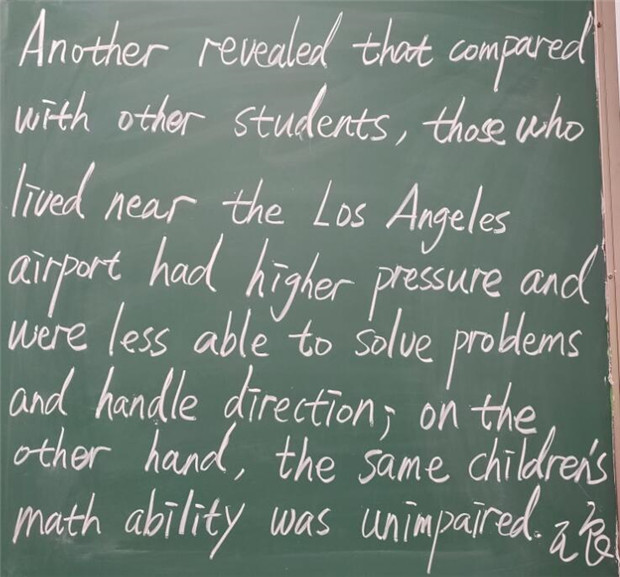 Another revealed that compared
with other students, those who
lived near the Los Angeles
airport had higher pressure and
were less able to solve problems
and handle direction; on the
other hand, the same children's
math ability was unimpaired.